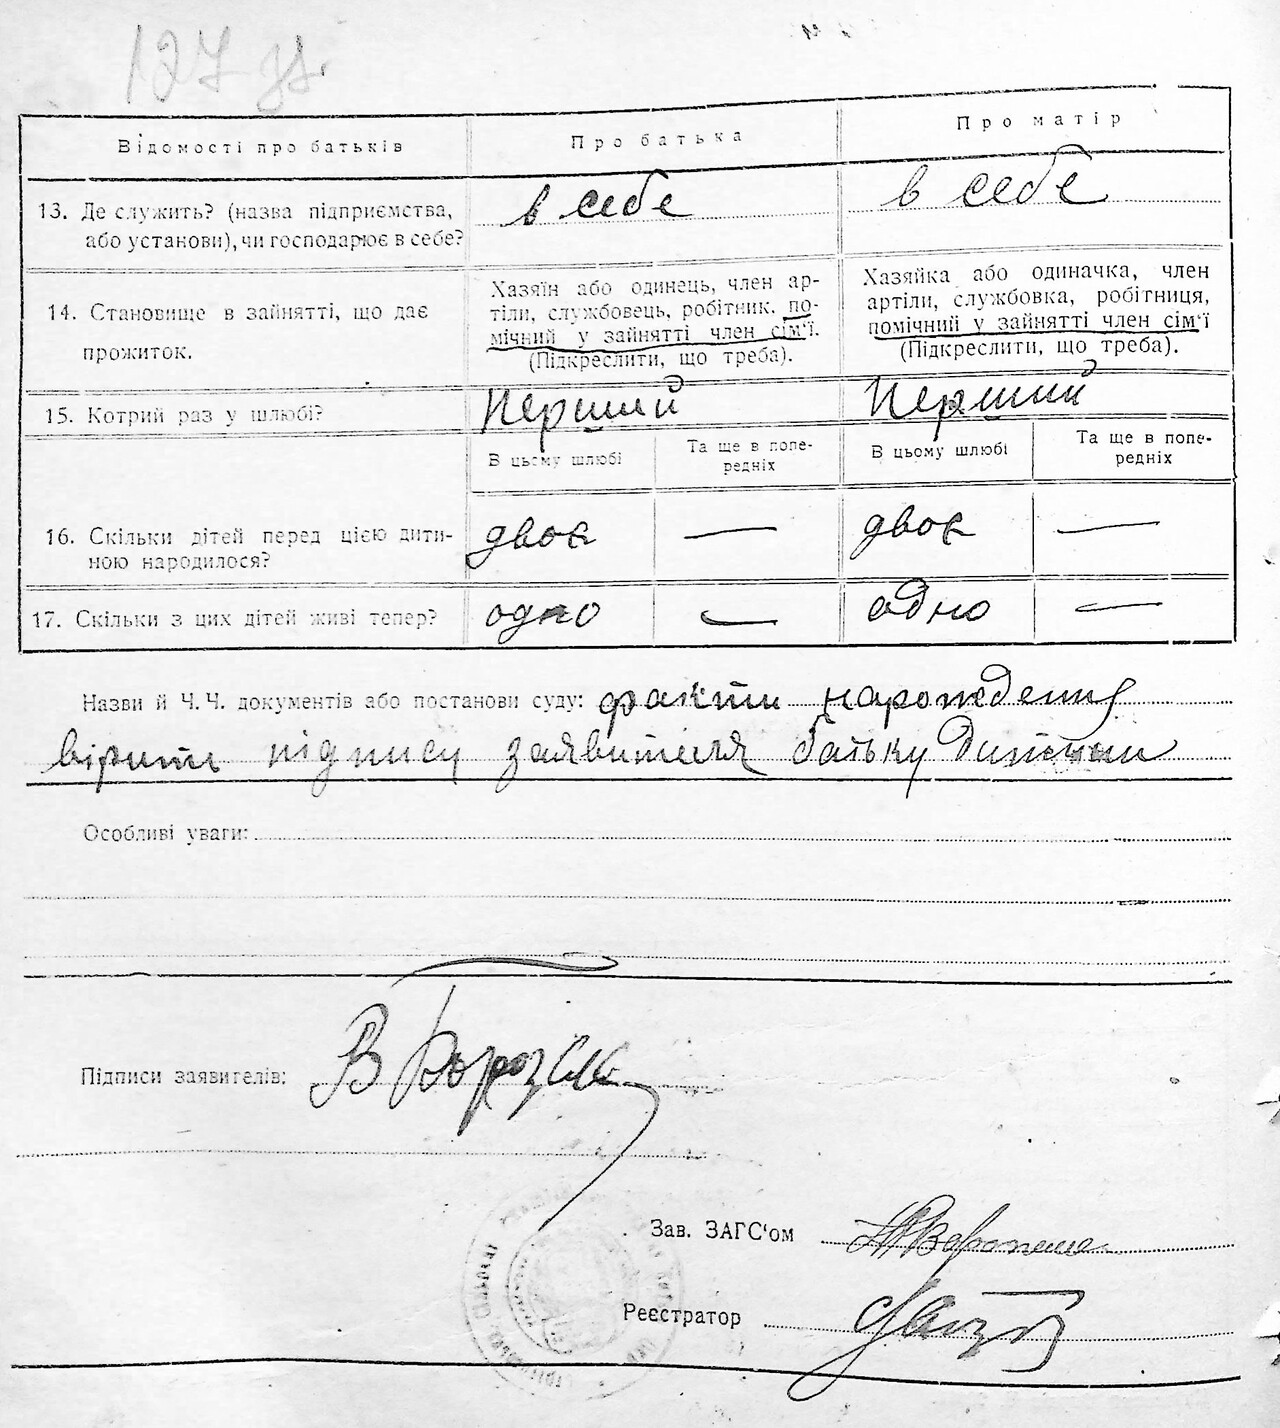 127 зв.
Відомості про батьків
Про батька
Про матір
13. Де служить? (назва підприємства, або установи), чи господарює в себе?
в себе
в себе
14. Становище в зайнятті, що дає прожиток.
Хазяїн або одинець, член ар-
тілі, службовець, робітник. по-
мічний у зайнятті член сім'ї.
(Підкреслити, що треба).
Хазяйка або одиначка, член
артіли, службовка, робітниця,
помічний у зайнятті член сім'ї
(Підкреслити, що треба).
15. Котрий раз у шлюбі?
Перший
Перший
В цьому шлюбі
Та ще в попе-
редніх
В цьому шлюбі
Та ще в попе-
редніх
16. Скільки дітей перед цією дити-
ною народилося?
двоє
—
двоє
—
17. Скільки з цих дітей живі тепер?
одно
—
одно
—
Назви й Ч. Ч. документів або постанови суду: факти нарождения
вірити підпису заявителя батьку дитини
Особливі уваги:
Підписи заявителів: В Борозн
Зав. ЗАГС'ом
Реєстратор